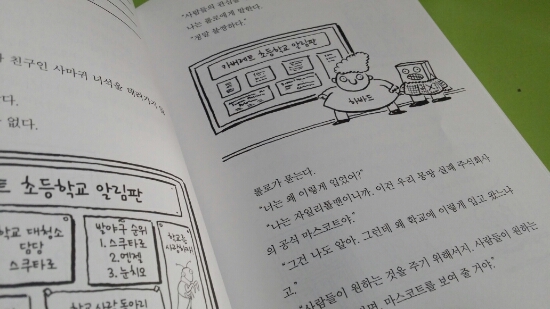 친구인 사마귀 녀석을
다.
없다.
초등학교 알림판
학교 대청소
담당
스쿠타로
발야구 순위
1. 스쿠타로
2. 엔젤
3. 눈치요
학교를
사랑하자!
학교사랑 동아리
"사람들의 관심을
나는 롤로에게 말한다.
"정말 불쌍하다."
초등학교 알림판
하바드
롤로가 묻는다.
"너는 왜 이렇게 입었어?"
"나는 자일리톨맨이니까. 이건 우리 몽땅 실패 주식회사
의 공식 마스코트야."
"그건 나도 알아. 그런데 왜 학교에 이렇게 입고 왔느냐
고."
"사람들이 원하는 것을 주기 위해서지. 사람들이 원하는
마스코트를 보여 줄 거야."